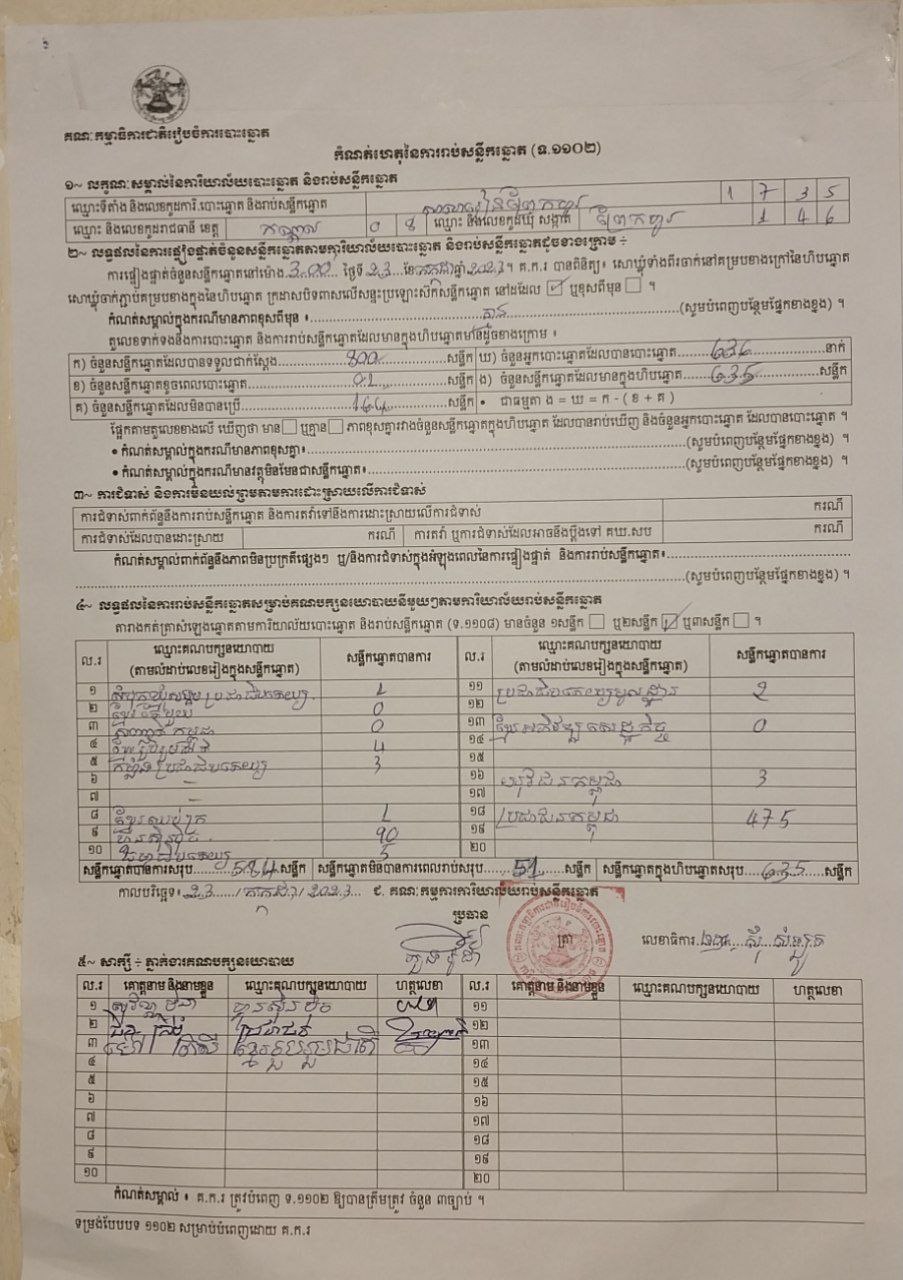 គណៈកម្មាធិការជាតិរៀបចំការបោះឆ្នោត
កំណត់ហេតុនៃការរាប់សន្លឹកឆ្នោត (ទ.១១០២)
១~ លក្ខណៈសម្គាល់នៃការិយាល័យបោះឆ្នោត និងរាប់សន្លឹកឆ្នោត
ឈ្មោះទីតាំង និងលេខកូដការិ.បោះឆ្នោត និងរាប់សន្លឹកឆ្នោត 1 7 3 5
ឈ្មោះ និងលេខកូដរាជធានី ខេត្ត កណ្តាល 0 8 ឈ្មោះ និងលេខកូដឃុំ សង្កាត់ 1 4 6
២~ លទ្ធផលនៃការផ្ទៀងផ្ទាត់ចំនួនសន្លឹកឆ្នោតតាមការិយាល័យបោះឆ្នោត និងរាប់សន្លឹកឆ្នោតដូចខាងក្រោម ÷
ការផ្ទៀងផ្ទាត់ចំនួនសន្លឹកឆ្នោតនៅម៉ោង 3.00 ថ្ងៃទី 23 ខែ កក្កដា ឆ្នាំ 2023។ គ.ក.រ បានពិនិត្យ៖ សោឃ្លុំទាំងពីរចាក់នៅគម្របខាងក្រៅនៃហិបឆ្នោត
សោឃ្លុំចាក់ភ្ជាប់គម្របខាងក្នុងនៃហិបឆ្នោត ក្រដាសបិទពាសលើសន្ទះប្រឡោះសឹកសន្លឹកឆ្នោត នៅដដែល ☑ ឬខុសពីមុន ☐ ។
កំណត់សម្គាល់ក្នុងករណីមានភាពខុសពីមុន ៖ គ្មាន (សូមបំពេញបន្ថែមផ្នែកខាងខ្នង) ។
តួលេខទាក់ទងនឹងការបោះឆ្នោត និងការរាប់សន្លឹកឆ្នោតដែលមានក្នុងហិបឆ្នោតមានដូចខាងក្រោម ៖
ក) ចំនួនសន្លឹកឆ្នោតដែលបានទទួលជាក់ស្តែង 800 សន្លឹក ឃ) ចំនួនអ្នកបោះឆ្នោតដែលបានបោះឆ្នោត នាក់
ខ) ចំនួនសន្លឹកឆ្នោតខូចពេលបោះឆ្នោត 01 សន្លឹក ង) ចំនួនសន្លឹកឆ្នោតដែលមានក្នុងហិបឆ្នោត 635 សន្លឹក
គ) ចំនួនសន្លឹកឆ្នោតដែលមិនបានប្រើ 164 សន្លឹក • ជាធម្មតា ង = ឃ = ក - ( ខ + គ )
ផ្អែកតាមតួលេខខាងលើ ឃើញថា មាន ☐ ឬគ្មាន ☐ ភាពខុសគ្នារវាងចំនួនសន្លឹកឆ្នោតក្នុងហិបឆ្នោត ដែលបានរាប់ឃើញ និងចំនួនអ្នកបោះឆ្នោត ដែលបានបោះឆ្នោត ។
• កំណត់សម្គាល់ក្នុងករណីមានភាពខុសគ្នា៖ (សូមបំពេញបន្ថែមផ្នែកខាងខ្នង) ។
• កំណត់សម្គាល់ក្នុងករណីមានវត្ថុមិនមែនជាសន្លឹកឆ្នោត៖ (សូមបំពេញបន្ថែមផ្នែកខាងខ្នង) ។
៣~ ការជំទាស់ និងការមិនយល់ព្រមតាមការដោះស្រាយលើការជំទាស់
ការជំទាស់ពាក់ព័ន្ធនឹងការរាប់សន្លឹកឆ្នោត និងការតវ៉ាទៅនឹងការដោះស្រាយលើការជំទាស់ ករណី
ការជំទាស់ដែលបានដោះស្រាយ ករណី ការតវ៉ា ឬការជំទាស់ដែលអាចនឹងប្តឹងទៅ គឃ.សប ករណី
កំណត់សម្គាល់ពាក់ព័ន្ធនឹងភាពមិនប្រក្រតីផ្សេងៗ ឬ/និងការជំទាស់ក្នុងអំឡុងពេលនៃការផ្ទៀងផ្ទាត់ និងការរាប់សន្លឹកឆ្នោត៖
(សូមបំពេញបន្ថែមផ្នែកខាងខ្នង) ។
៤~ លទ្ធផលនៃការរាប់សន្លឹកឆ្នោតសម្រាប់គណបក្សនយោបាយនីមួយៗតាមការិយាល័យរាប់សន្លឹកឆ្នោត
តារាងកត់ត្រាសំឡេងឆ្នោតតាមការិយាល័យបោះឆ្នោត និងរាប់សន្លឹកឆ្នោត (ទ.១១០៨) មានចំនួន ១សន្លឹក ☐ ឬ២សន្លឹក ☑ ឬ៣សន្លឹក ☐ ។
ល.រ ឈ្មោះគណបក្សនយោបាយ (តាមលំដាប់លេខរៀងក្នុងសន្លឹកឆ្នោត) សន្លឹកឆ្នោតបានការ ល.រ ឈ្មោះគណបក្សនយោបាយ (តាមលំដាប់លេខរៀងក្នុងសន្លឹកឆ្នោត) សន្លឹកឆ្នោតបានការ
១ សំបុកឃ្មុំសង្គមប្រជាធិបតេយ្យ 1 ១១ ប្រជាធិបតេយ្យមូលដ្ឋាន 2
២ ខ្មែររួបរួម 0 ១២
៣ សញ្ជាតិកម្ពុជា 0 ១៣ ខ្មែរអភិវឌ្ឍន៍សេដ្ឋកិច្ច 0
៤ ខ្មែររួបរួមជាតិ 4 ១៤
៥ កម្លាំងប្រជាធិបតេយ្យ 3 ១៥
៦ – ១៦ យុវជនកម្ពុជា 3
៧ – ១៧
៨ ខ្មែរឈប់ក្រ 1 ១៨ ប្រជាជនកម្ពុជា 475
៩ ហ៊្វុនស៊ិនប៉ិច 90 ១៩
១០ 5 ២០
សន្លឹកឆ្នោតបានការសរុប 584 សន្លឹក សន្លឹកឆ្នោតមិនបានការពេលរាប់សរុប 51 សន្លឹក សន្លឹកឆ្នោតក្នុងហិបឆ្នោតសរុប 635 សន្លឹក
កាលបរិច្ឆេទ៖ 23 / កក្កដា / 2023 ជ. គណៈកម្មការការិយាល័យរាប់សន្លឹកឆ្នោត
ប្រធាន
ត្រា លេខាធិការ
៥~ សាក្សី ÷ ភ្នាក់ងារគណបក្សនយោបាយ
ល.រ គោត្តនាម និងនាមខ្លួន ឈ្មោះគណបក្សនយោបាយ ហត្ថលេខា ល.រ គោត្តនាម និងនាមខ្លួន ឈ្មោះគណបក្សនយោបាយ ហត្ថលេខា
១ ហ៊្វុនស៊ិនប៉ិច ១១
២ ប្រជាជន ១២
៣ ខ្មែររួបរួមជាតិ ១៣
៤ ១៤
៥ ១៥
៦ ១៦
៧ ១៧
៨ ១៨
៩ ១៩
១០ ២០
កំណត់សម្គាល់ ៖ គ.ក.រ ត្រូវបំពេញ ទ.១១០២ ឱ្យបានត្រឹមត្រូវ ចំនួន ៣ច្បាប់ ។
ទម្រង់បែបបទ ១១០២ សម្រាប់បំពេញដោយ គ.ក.រ